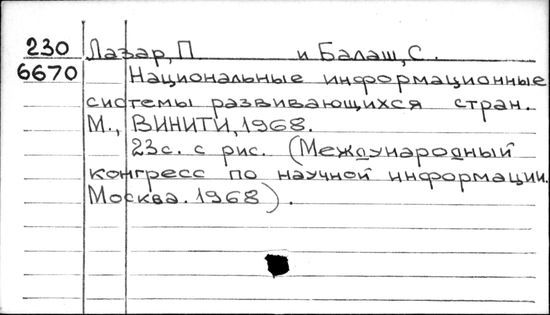 230 Лазар, П и Балаш, С.
6670 Национальные информационные
системы развивающихся стран.
М., ВИНИТИ, 1968.
23с. с рис. (Международный
конгресс по научной информации.
Москва. 1968).